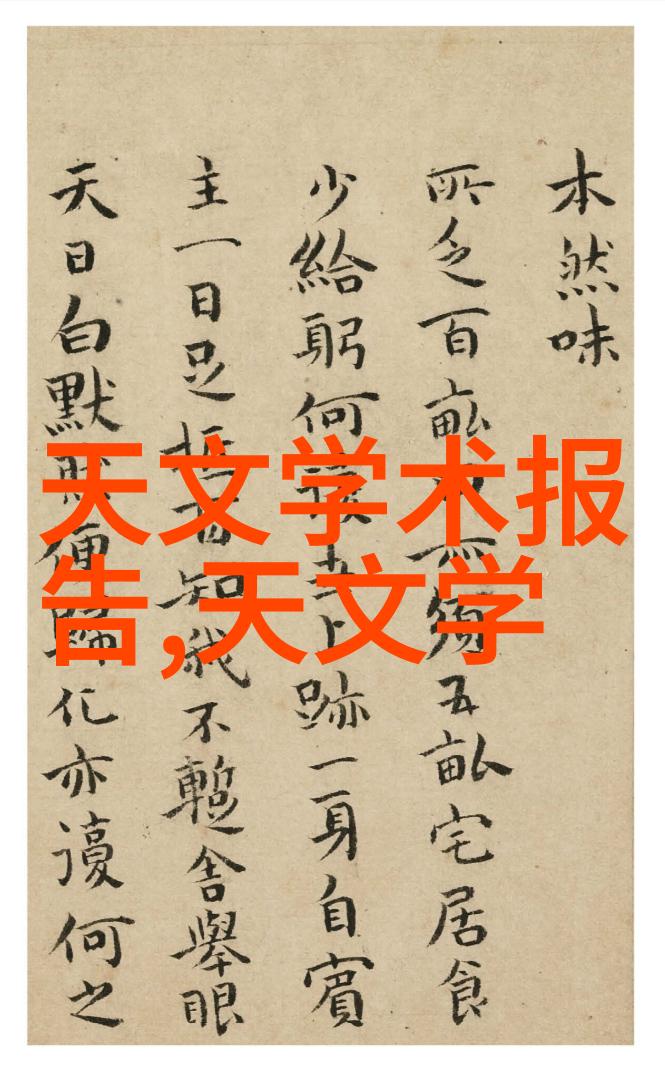 本然味
所乏百畝須五畝宅居食
少給躬何上跡一身自賓
主一日足知我不暫舍舉眼
天日白默默便歸化亦何之
天文学术报
告,天文学